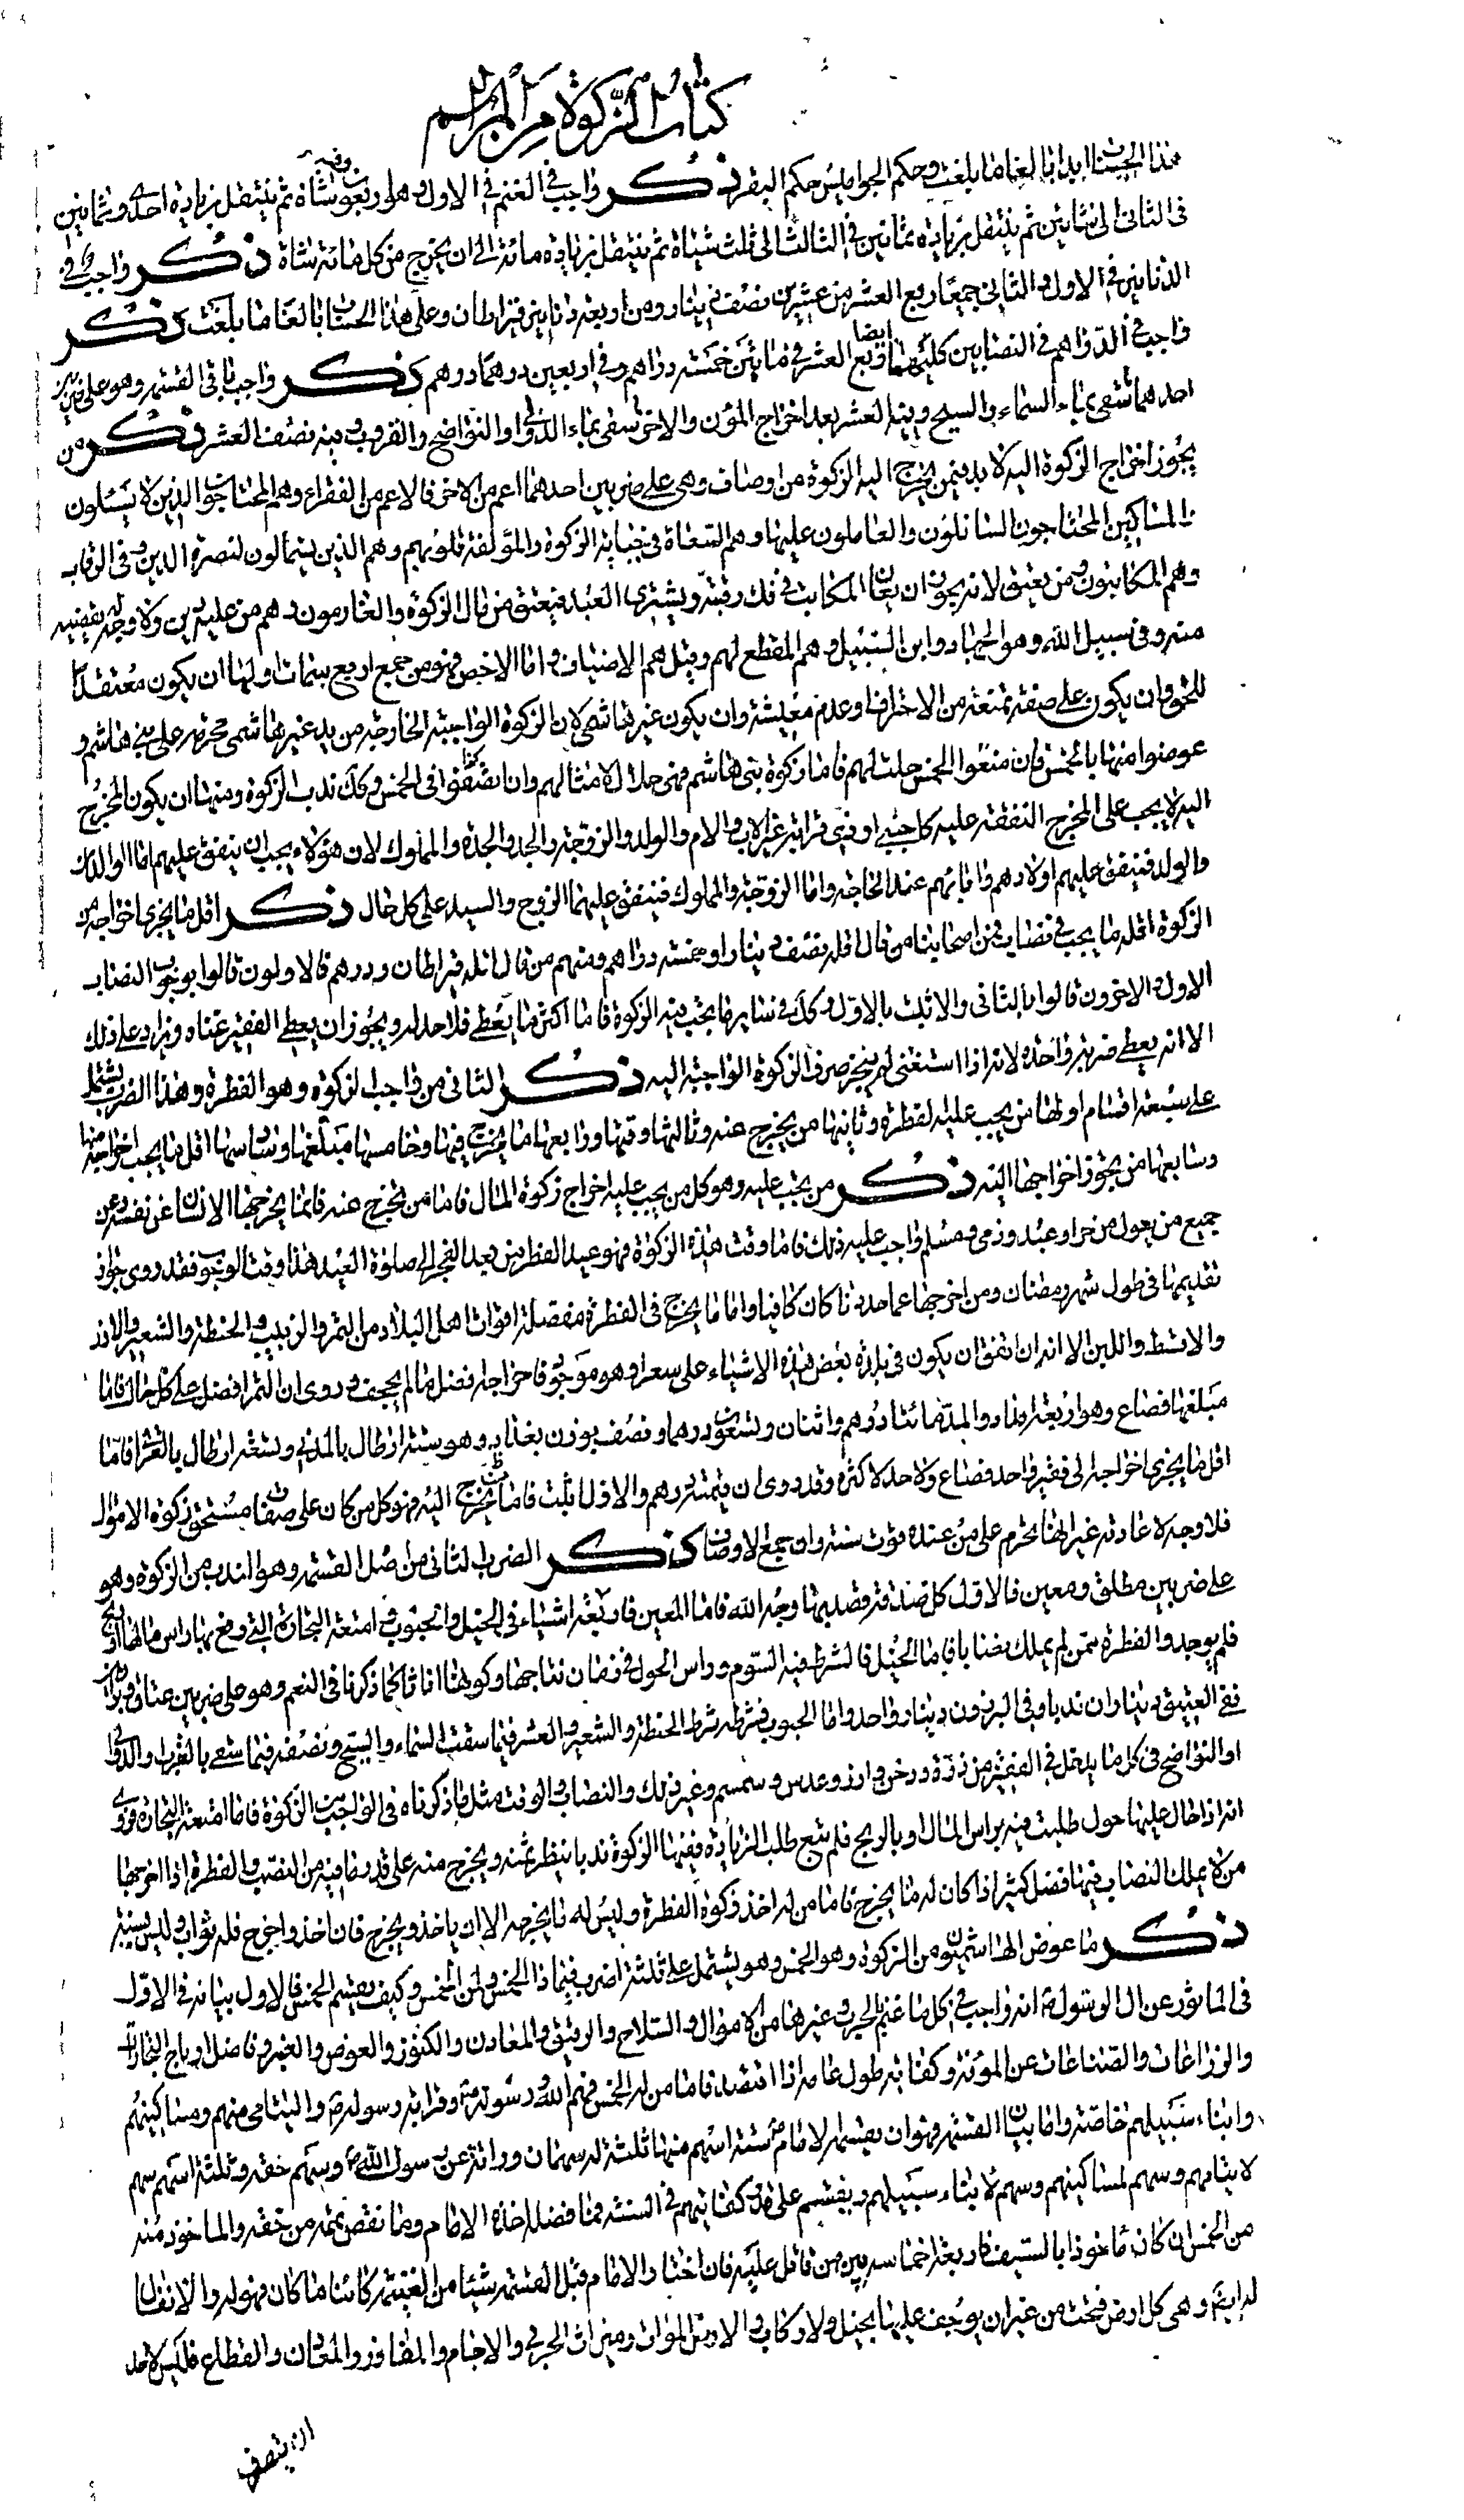 كتاب الزكوة من المراسم
هذا الحساب ابدا بالغا ما بلغت وحكم الجواميس حكم البقر ذكر واجب في الغنم في الاول وهو اربعون شاة وفيه شاة ثم ينتقل بزيادة احدى وثمانين
في الثاني الى شاتين ثم ينتقل بزيادة ثمانين في الثالث الى ثلث شياة ثم ينتقل بزيادة مائة الى ان يخرج من كل مائة شاة ذكر واجب في
الدنانير في الاول والثاني جميعا ربع العشر من عشرين نصف دينار ومن اربعة دنانير قيراطان وعلى هذا الحساب بالغا ما بلغت ذكر
واجب في الدراهم في النصابين كليهما ايضا ربع العشر في مائتين خمسة دراهم وفي اربعين درهما درهم ذكر واجب باقي القسمة وهو على ضربين
احدهما سقي بماء السماء والسيح وفيه العشر بعد اخراج المؤن والاخر سقي بماء الدوالي او النواضح والقروب وفيه نصف العشر ذكر من
يجوز اخراج الزكوة اليه لا بد فيمن يخرج اليه الزكوة من اوصاف وهي على ضربين احدهما اعم من الاخر فالاعم من الفقراء وهم المحتاجون الذين لا يسئلون
والمساكين المحتاجون السائلون والعاملون عليها وهم السعاة في جباية الزكوة والمؤلفة قلوبهم وهم الذين يستمالون لنصرة الدين وفي الرقاب
وهم المكاتبون ومن يعتق لانه يجوز ان يعان المكاتب في فك رقبته ويشترى العبد فيعتق من مال الزكوة والغارمون وهم من عليه دين ولا وجه له يقضيه
منه وفي سبيل الله وهو الجهاد وابن السبيل وهم المقطع لهم وقيل هم الاضياف واما الاخص فهو من جمع اربع سمات اولها ان يكون معتقدا
للحق وان يكون على صفة تمنعه من الاحتراف وعدم معيشة وان يكون غير هاشمي لان الزكوة الواجبة الخارجة من يد غير هاشمي محرمة على بني هاشم و
عوضوا منها بالخمس فان منعوا الخمس حلت لهم فاما زكوة بني هاشم فهي حلال لامثالهم وان يضيقوا في الخمس وكك ندب الزكوة ومنها ان يكون المخرج
اليه لا يجب على المخرج النفقة عليه كاجنبي او ذي قرابة غير الاب والام والولد والزوجة والجد والجدة والمملوك لان هؤلاء يجب ان ينفق عليهم اما الوالدان
والولد فينفق عليهم اولادهم واباؤهم عند الحاجة واما الزوجة والمملوك فينفق عليهما الزوج والسيد على كل حال ذكر اقل ما يجزي اخراجه من
الزكوة اقله ما يجب في نصاب فمن اصحابنا من قال اقله نصف دينار او خمسة دراهم ومنهم من قال اقله قيراطان ودرهم فالاولون قالوا بوجوب النصاب
الاول والاخرون قالوا بالثاني والاثبت بالاول وكك في سائر ما يجب فيه الزكوة فاما اكثر ما يعطى فلا حد له ويجوز ان يعطى الفقير غناه ويزاد على ذلك
الا انه يعطى ضربة واحدة لانه اذا استغنى لم يجز صرف الزكوة الواجبة اليه ذكر الثاني من واجب الزكوة وهو الفطرة وهذا الضرب يشتمل
على سبعة اقسام اولها من يجب عليه الفطرة وثانيها من يخرج عنه وثالثها وقتها ورابعها ما يخرج فيها وخامسها مبلغها وسادسها اقل ما يجب اخراجه منها
وسابعها من يجوز اخراجها اليه ذكر من يجب عليه وهو كل من يجب عليه اخراج زكوة المال فاما من تخرج عنه فانما يخرجها الانسان عن نفسه وعن
جميع من يعول من حر او عبد وذمي ومسلم واجب عليه ذلك فاما وقت هذه الزكوة فهو عيد الفطر من بعد الفجر الى صلوة العيد هذا وقت الوجوب فقد روي جواز
تقديمها في طول شهر رمضان ومن اخرجها عما حددناه كان كافيا واما ما يخرج في الفطرة مفصلة اقوات اهل البلاد من التمر والزبيب والحنطة والشعير والارز
والاقط واللبن الا انه ان اتفق ان يكون في بلدة بعض هذه الاشياء على سعرا وهو موجود فاخراجه افضل ما لم يجحف وروي ان التمر افضل على كل حال فاما
مبلغها فصاع وهو اربعة امداد والمد مائتا درهم واثنان وتسعون درهما ونصف بوزن بغداد وهو ستة ارطال بالمدني وتسعة ارطال بالعراقي فاما
اقل ما يجزي اخراجه الى فقير واحد فصاع ولا حد لاكثره وقد روي ان قيمته درهم والاول اثبت فاما من تخرج اليه فهو كل من كان على صفات مستحق زكوة الاموال
فلا وجه لاعادته غير انها تحرم على من عنده قوت سنة وان جمع الاوصاف ذكر الضرب الثاني من اصل القسمة وهو الندب من الزكوة وهو
على ضربين مطلق ومعين فالاول كل صدقة قصد بها وجه الله فاما المعين فاربعة اشياء في الخيل والحبوب وفي امتعة التجارة التي دفع بها راس مالها او الربح
فلم يوجد والفطرة ممن لم يملك نصابا فاما الخيل فالشرط فيه السوم وراس الحول في زمان نتاجها وكونها اناثا كما ذكرنا في النعم وهو على ضربين عتاق وبراذين
ففي العتيق ديناران ندبا وفي البرذون دينار واحد واما الحبوب فشرطه شرط الحنطة والشعير والعشر فيما سقت السماء والسيح ونصفه فيما سقي بالغرب والدوالي
او النواضح في كل ما يدخل في القفيز من ذرة ودخن وارز وعدس وسمسم وغير ذلك والنصاب والوقت مثل ما ذكرناه في الواجب من الزكوة فاما امتعة التجارة فروي
انه اذا حال عليها حول طلبت فيه براس المال او بالربح فلم تبع طلب الزيادة ففيها الزكوة ندبا ينظر ثمنه ويخرج منه على قدر ما فيه من النصب والفطرة اذا اخرجها
من لا يملك النصاب فيها فضل كثير اذا كان له ما يخرج فاما من له اخذ زكوة الفطرة وليس له ما يخرجه الا ان ياخذ ويخرج فان اخذ واخرج فله ثواب وليس بسنة
ذكر ما عوض الهاشميون من الزكوة وهو الخمس وهو يشتمل على ثلثة اضرب فيما ذا الخمس ولمن الخمس وكيف يقسم الخمس فالاول بيانه في الاول
في الماثور عن ال الرسول انه واجب في كل ما غنم بالحرب وغيرها من الاموال والسلاح والرقيق والمعادن والكنوز والغوص والعنبر وفاضل ارباح التجارات
والزراعات والصناعات عن المؤنة وكفاية طول عامه اذا اقتصد فاما من له الخمس فهم الله ورسوله وقرابة رسوله واليتامى منهم ومساكينهم
وابناء سبيلهم خاصة واما بيان القسمة فهو ان يقسمه الامام ستة اسهم منها ثلثة له سهمان وراثة عن رسول الله وسهم حقه وثلثة اسهم سهم
لايتامهم وسهم لمساكينهم وسهم لابناء سبيلهم ويقسم على قدر كفايتهم في السنة فما فضل اخذه الامام وما نقص تممه من حقه والماخوذ منه
من الخمس ان كان ماخوذا بالسيف فاربعة اخماسه بين من قاتل عليه فان اختار الامام قبل القسمة شيئا من الغنيمة كائنا ما كان فهو له والانفال
له ايضا وهي كل ارض فتحت من غير ان يوجف عليها بخيل ولا ركاب والارض الموات وميراث الحربي والاجام والمفاوز والمعادن والقطايع فليس لاحد
ان يتصرف